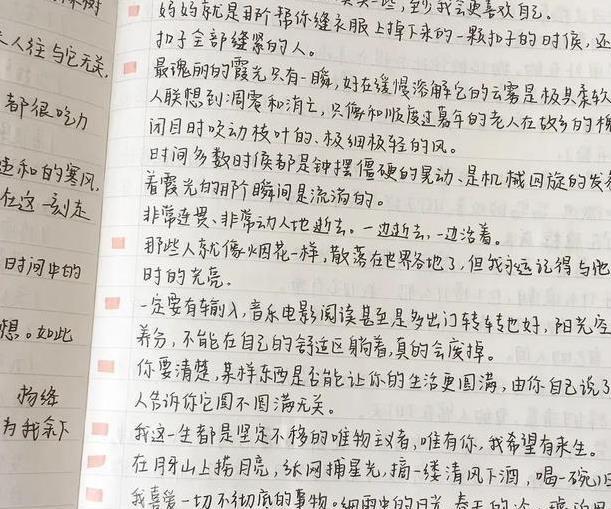 人往与它无关,
都很吃力
和的寒风,
在这一刻走
时间中的
想。如此
杨绛
为我余下
些,至少我会更喜欢自己。
妈妈就是那个帮你缝衣服上掉下来的一颗扣子的时候,还
扣子全部缝紧的人。
最瑰丽的霞光只有一瞬,好在缓慢溶解它的云雾是极具柔软
人联想到凋零和消亡,只像和顺度过暮年的老人在故乡的
闭目时吹动枝叶的、极细极轻的风。
时间多数时候都是钟摆僵硬的晃动、是机械回旋的发条
着霞光的那个瞬间是流淌的。
非常连贯、非常动人地逝去。一边逝去,一边活着。
那些人就像烟花一样,散落在世界各地了,但我永远记得与他
时的光亮。
一定要有输入,音乐电影阅读甚至是多出门转转也好,阳光空
养分,不能在自己的舒适区躺着,真的会废掉。
你要清楚,某样东西是否能让你的生活更圆满,由你自己说了
人告诉你它圆不圆满无关。
我这一生都是坚定不移的唯物主义者,唯有你,我希望有来生。
在月牙山上捞月亮,纸网捕星光,摘一缕清风下酒,喝一碗
我喜爱一切不彻底的事物。细雨中的日光,春天的冷,